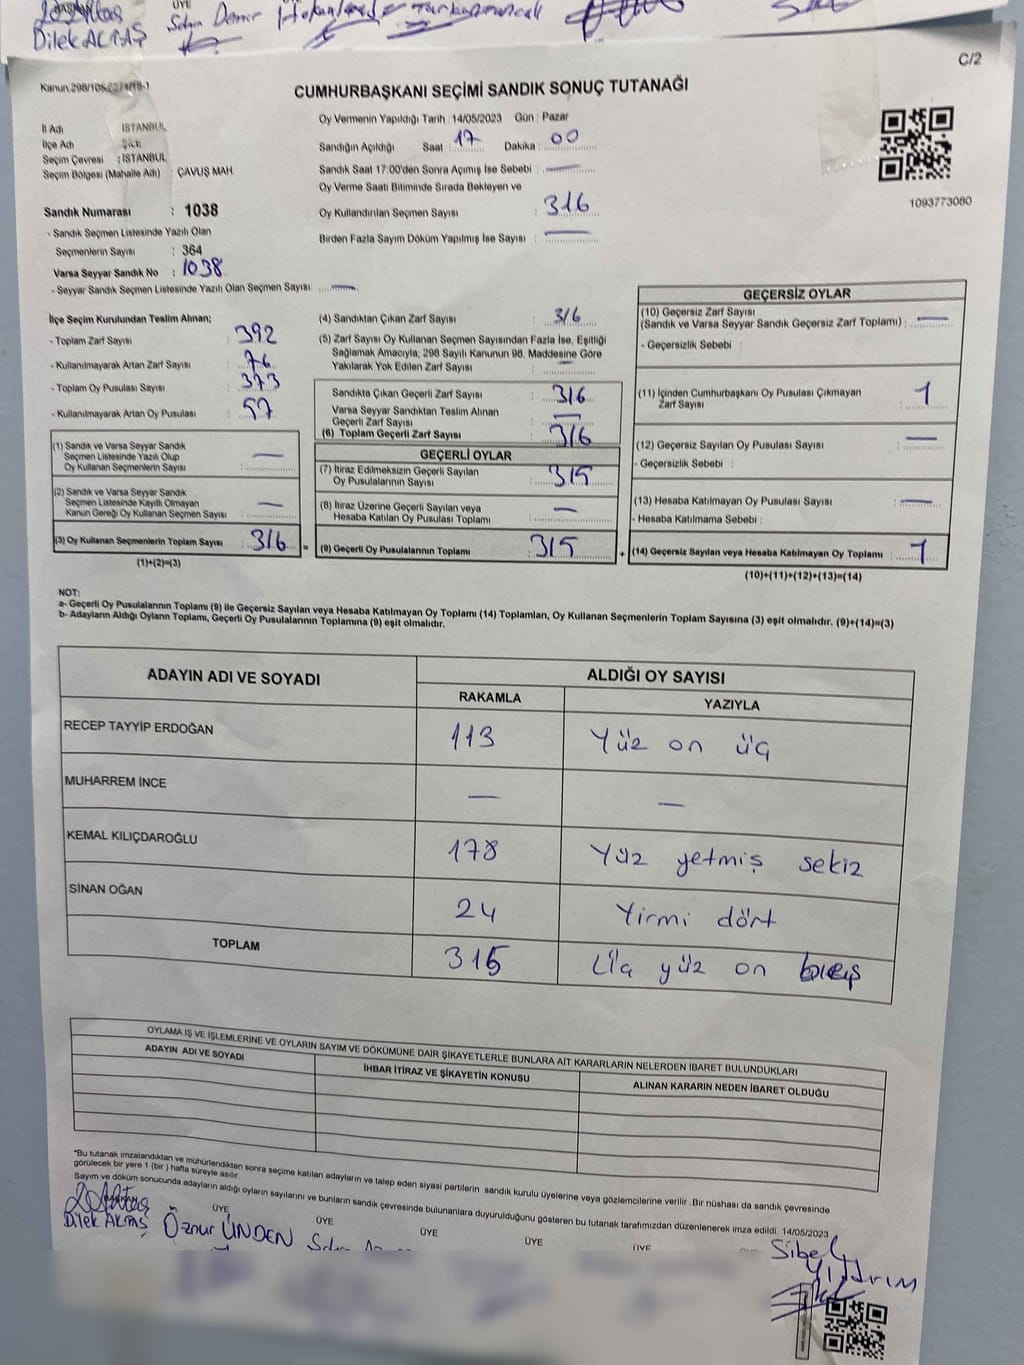 ÜYE
Dilek AKTAŞ
C/2
CUMHURBAŞKANI SEÇİMİ SANDIK SONUÇ TUTANAĞI
İl Adı İSTANBUL
İlçe Adı ŞİLE
Seçim Çevresi : İSTANBUL
Seçim Bölgesi (Mahalle Adı) : ÇAVUŞ MAH.
Sandık Numarası : 1038
- Sandık Seçmen Listesinde Yazılı Olan
Seçmenlerin Sayısı : 364
Varsa Seyyar Sandık No : 1038
- Seyyar Sandık Seçmen Listesinde Yazılı Olan Seçmen Sayısı: —
Oy Vermenin Yapıldığı Tarih : 14/05/2023 Gün : Pazar
Sandığın Açıldığı Saat 17 Dakika : 00
Sandık Saat 17:00'den Sonra Açımış İse Sebebi : —
Oy Verme Saati Bitiminde Sırada Bekleyen ve
Oy Kullandırılan Seçmen Sayısı : 316
Birden Fazla Sayım Döküm Yapılmış İse Sayısı : —
1093773080
İlçe Seçim Kurulundan Teslim Alınan;
- Toplam Zarf Sayısı : 392
- Kullanılmayarak Artan Zarf Sayısı : 76
- Toplam Oy Pusulası Sayısı : 373
- Kullanılmayarak Artan Oy Pusulası : 57
(1) Sandık ve Varsa Seyyar Sandık
Seçmen Listesinde Yazılı Olup
Oy Kullanan Seçmenlerin Sayısı : —
(2) Sandık ve Varsa Seyyar Sandık
Seçmen Listesinde Kayıtlı Olmayan
Kanun Gereği Oy Kullanan Seçmen Sayısı : —
(3) Oy Kullanan Seçmenlerin Toplam Sayısı : 316
(1)+(2)=(3)
(4) Sandıktan Çıkan Zarf Sayısı : 316
(5) Zarf Sayısı Oy Kullanan Seçmen Sayısından Fazla İse, Eşitliği
Sağlamak Amacıyla; 298 Sayılı Kanunun 98. Maddesine Göre
Yakılarak Yok Edilen Zarf Sayısı : —
Sandıkta Çıkan Geçerli Zarf Sayısı : 316
Varsa Seyyar Sandıktan Teslim Alınan
Geçerli Zarf Sayısı : —
(6) Toplam Geçerli Zarf Sayısı : 316
GEÇERLİ OYLAR
(7) İtiraz Edilmeksizin Geçerli Sayılan
Oy Pusulalarının Sayısı : 315
(8) İtiraz Üzerine Geçerli Sayılan veya
Hesaba Katılan Oy Pusulası Toplamı : —
= (9) Geçerli Oy Pusulalarının Toplamı : 315
GEÇERSİZ OYLAR
(10) Geçersiz Zarf Sayısı
(Sandık ve Varsa Seyyar Sandık Geçersiz Zarf Toplamı) : —
- Geçersizlik Sebebi :
(11) İçinden Cumhurbaşkanı Oy Pusulası Çıkmayan
Zarf Sayısı : 1
(12) Geçersiz Sayılan Oy Pusulası Sayısı : —
- Geçersizlik Sebebi :
(13) Hesaba Katılmayan Oy Pusulası Sayısı : —
- Hesaba Katılmama Sebebi :
+ (14) Geçersiz Sayılan veya Hesaba Katılmayan Oy Toplamı : 1
(10)+(11)+(12)+(13)=(14)
NOT:
a- Geçerli Oy Pusulalarının Toplamı (9) ile Geçersiz Sayılan veya Hesaba Katılmayan Oy Toplamı (14) Toplamları, Oy Kullanan Seçmenlerin Toplam Sayısına (3) eşit olmalıdır. (9)+(14)=(3)
b- Adayların Aldığı Oyların Toplamı, Geçerli Oy Pusulalarının Toplamına (9) eşit olmalıdır.
ADAYIN ADI VE SOYADI ALDIĞI OY SAYISI
RAKAMLA YAZIYLA
RECEP TAYYİP ERDOĞAN 113 Yüz on üç
MUHARREM İNCE — —
KEMAL KILIÇDAROĞLU 178 Yüz yetmiş sekiz
SİNAN OĞAN 24 Yirmi dört
TOPLAM 315 Üç yüz on
OYLAMA İŞ VE İŞLEMLERİNE VE OYLARIN SAYIM VE DÖKÜMÜNE DAİR ŞİKAYETLERLE BUNLARA AİT KARARLARIN NELERDEN İBARET BULUNDUKLARI
ADAYIN ADI VE SOYADI İHBAR İTİRAZ VE ŞİKAYETİN KONUSU ALINAN KARARIN NEDEN İBARET OLDUĞU
*Bu tutanak imzalandıktan ve mühürlendikten sonra seçime katılan adayların ve talep eden siyasi partilerin sandık kurulu üyelerine veya gözlemcilerine verilir. Bir nüshası da sandık çevresinde
görülecek bir yere 1 (bir) hafta süreyle asılır.
Sayım ve döküm sonucunda adayların aldığı oyların sayılarını ve bunların sandık çevresinde bulunanlara duyurulduğunu gösteren bu tutanak tarafımızdan düzenlenerek imza edildi. 14/05/2023
BAŞKAN ÜYE ÜYE ÜYE ÜYE ÜYE
Dilek AKTAŞ Öznur ÜNDEN Sibel Yıldırım